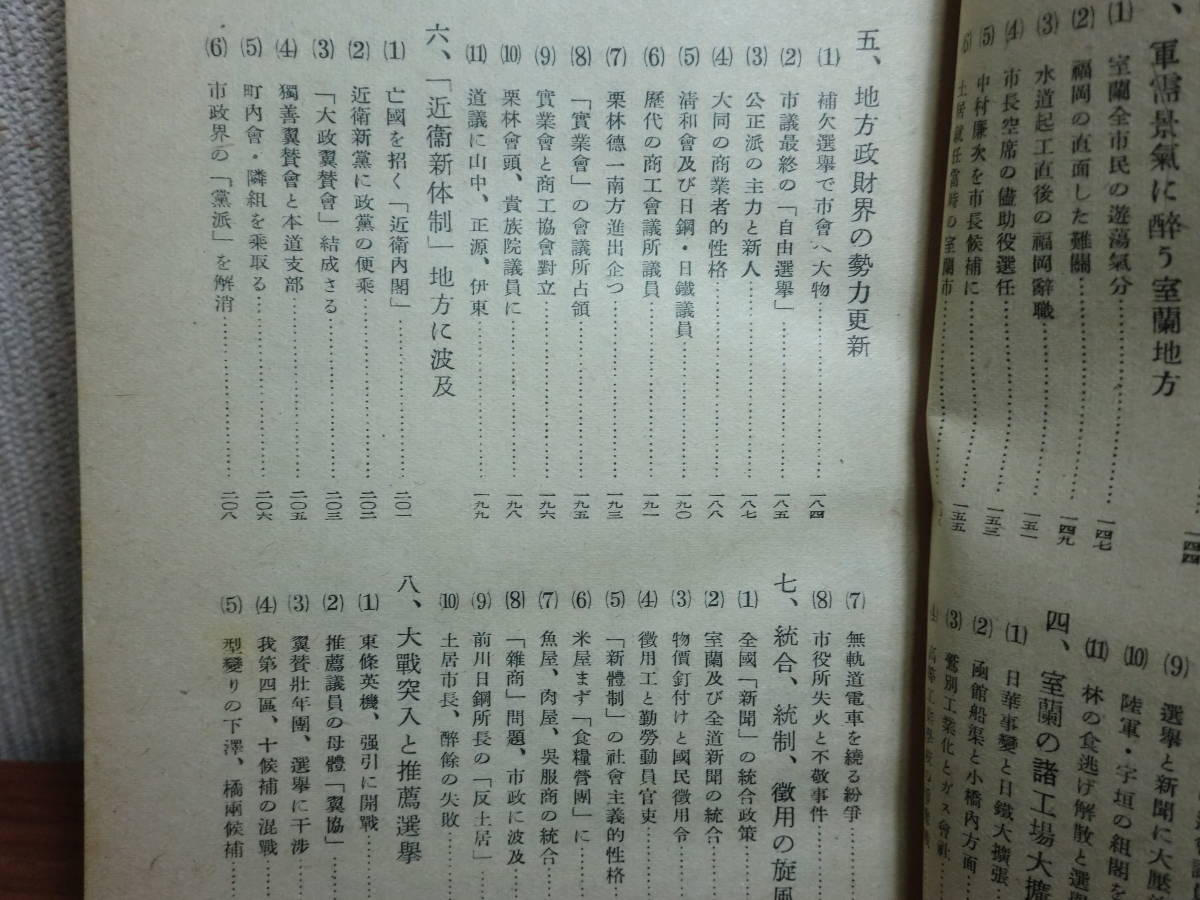 、軍需景氣に醉う室蘭地方
一四四
(1) 室蘭全市民の遊蕩氣分…………一四七
(2) 福岡の直面した難關…………一四九
(3) 水道起工直後の福岡辭職…………一五一
(4) 市長空席の儘助役選任…………一五三
(5) 中村廉次を市長候補に…………一五五
(6) 土居就任當時の室蘭市
五、地方政財界の勢力更新
(1) 補欠選擧で市會へ大物…………一八四
(2) 市議最終の「自由選擧」…………一八五
(3) 公正派の主力と新人…………一八七
(4) 大同の商業者的性格…………一八八
(5) 清和會及び日鋼・日鐵議員…………一九〇
(6) 歷代の商工會議所議員…………一九一
(7) 栗林德一南方進出企つ…………一九三
(8) 「實業會」の會議所占領…………一九五
(9) 實業會と商工協會對立…………一九六
(10) 栗林會頭、貴族院議員に…………一九八
(11) 道議に山中、正源、伊東…………一九九
六、「近衞新体制」地方に波及
(1) 亡國を招く「近衞內閣」…………二〇一
(2) 近衞新黨に政黨の便乘…………二〇二
(3) 「大政翼贊會」結成さる…………二〇三
(4) 獨善翼贊會と本道支部…………二〇五
(5) 町內會・隣組を乘取る…………二〇六
(6) 市政界の「黨派」を解消…………二〇八
(9) 選擧と新聞に大壓
(10) 陸軍・宇垣の組閣を
(11) 林の食逃げ解散と選擧
四、室蘭の諸工場大擴
(1) 日華事變と日鐵大擴張
(2) 函館船渠と小橋內方面
(3) 鷲別工業化とガス會社
(4)
(7) 無軌道電車を繞る紛爭…………
(8) 市役所失火と不敬事件…………
七、統合、統制、徵用の旋風
(1) 全國「新聞」の統合政策…………
(2) 室蘭及び全道新聞の統合…………
(3) 物價釘付けと國民徵用令…………
(4) 徵用工と勤勞動員官吏…………
(5) 「新體制」の社會主義的性格
(6) 米屋まず「食糧營團」に…………
(7) 魚屋、肉屋、吳服商の統合…………
(8) 「雜商」問題、市政に波及…………
(9) 前川日鋼所長の「反土居」…………
(10) 土居市長、醉餘の失敗…………
八、大戰突入と推薦選擧
(1) 東條英機、强引に開戰…………
(2) 推薦議員の母體「翼協」…………
(3) 翼贊壯年團、選擧に干涉…………
(4) 我第四區、十候補の混戰…………
(5) 型變りの下澤、橘兩候補…………